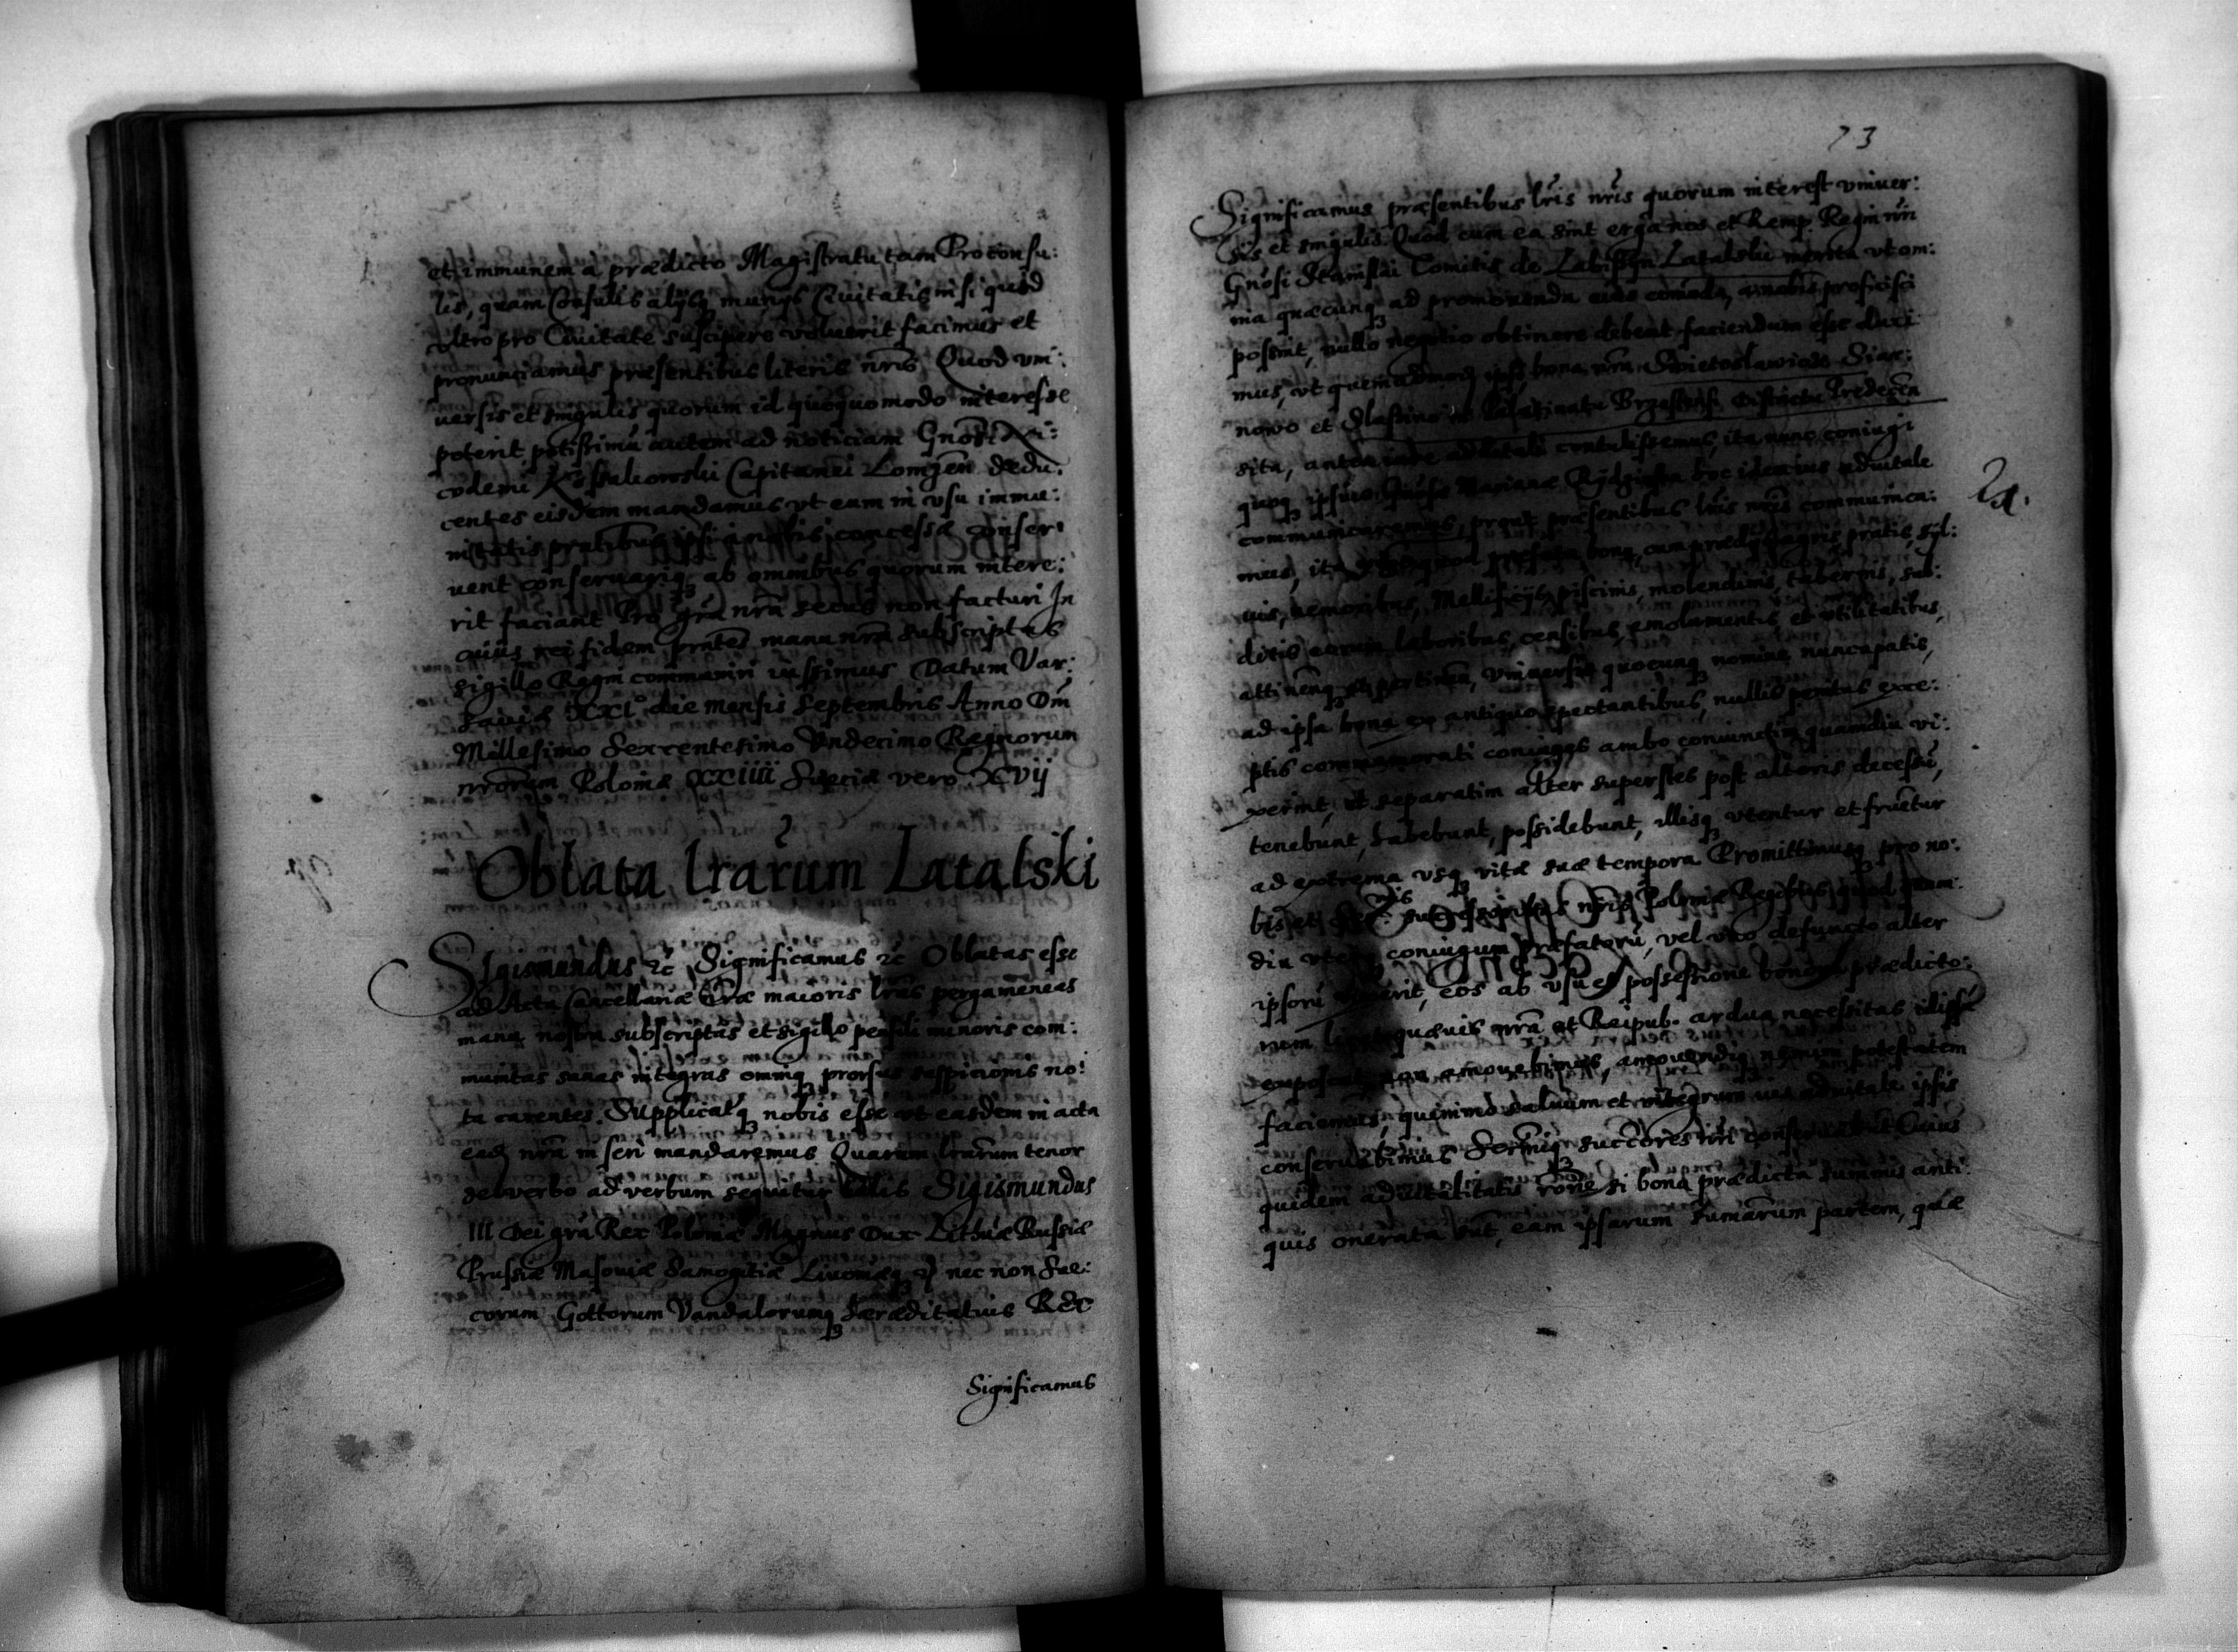 et immunem a prædicto Magistratu tam Proconsu:
lis, quam Consulis alijsq munijs Civitatis nisi quod
ultro pro Civitate suscipere voluerit facimus et
pronunciamus præsentibus literis nris Quod vni:
uersis et singulis quorum id quoquomodo interesse
poterit potissimu autem ad noticiam Gnosi Ni:
codemi Kossakowski Capitanei Lomzen dedu:
centes eisdem mandamus vt eam in vsu immu:
nitatis pntibus ipsi a nobis concessæ conser:
uent conseruariq ab omnibus quorum intere:
rit faciant Pro gra nra secus non facturi In
cuius rei fidem pntes manu nra subscriptas
sigillo Regni communiri iussimus Datum Var:
saviæ XXI die mensis Septembris Anno Dni
Millesimo Sexcentesimo Undecimo Regnorum
nrorum Poloniæ XXIIII Sueciæ vero XVij
Oblata lrarum Latalski
Sigismundus &c Significamus &c Oblatas esse
ad Acta Cancellariæ nræ maioris lras pergameneas
manu nostra subscriptas et sigillo pensili minoris com:
munitas sanas integras omniq prorsus suspicionis no:
ta carentes. Supplicatq nobis esse vt easdem in acta
ead nra inseri mandaremus Quarum lrarum tenor
de verbo ad verbum sequitur talis Sigismundus
III Dei gra Rex Poloniæ Magnus Dux Lithuæ Russiæ
Prussiæ Masoviæ Samogitiæ Livoniæq nec non Sue:
corum Gottorum Vandalorumq hæreditarius Rex
Significamus
73
Significamus præsentibus lris nris quorum interest vniuer:
sis et singulis Quod cum ea sint erga nos et Remp. Regni nri
Gnosi Stanislai Comitis de Labiszyn Latalski merita vt om:
nia quæcunq ad promouenda eius comoda, a nobis proficisci
possint, nullo negotio obtinere debeat faciendum esse duxi
mus, vt quemadmod ipsi bona nra Swietoslawice Siar:
nowo et in Palatinatu Brzesten. Districtu Predecen
sita, antea iure aduitali contulissemus, ita nunc coniugi
quoq ipsius Gnosæ Marianæ hoc idem ius aduitale
communicaremus, prout præsentibus lris nris communica:
mus, ita bona, cum prædijs agris pratis syl:
uis, nemoribus, Mellificijs, piscinis, molendinis, tabernis, sub:
ditis eorum laboribus, censibus, emolumentis et vtilitatibus,
attinenq et pertinen, vniuersis quocunq nomine nuncupatis,
ad ipsa bona ex antiquo spectantibus, nullis penitus exce:
ptis commemorati coniuges ambo coniunctim quamdiu vi:
xerint, vt separatim alter superstes post alteris decessu,
tenebunt, habebunt, possidebunt, illisq vtentur et fruetur
ad extrema vsq vitæ suæ tempora Promittimusq pro no:
bis et Sermis successoribus nris Poloniæ Regibus quod quam:
diu vterq coniugum præfatoru, vel vno defuncto alter
ipsoru vixerit, eos ab vsu et possessione bonorum prædicto:
rum licet quæuis nra et Reipub. ardua necessitas id
exposcat non amouebimus, amouendiq nemini potestatem
faciemus, quinimo saluum et integrum ius aduitale ipsis
conseruabimus Sermiq succores nri conseruabunt Cuius
quidem aduitalitatis rone si bona prædicta summis anti
quis onerata sut, eam ipsarum sumarum partem, quæ